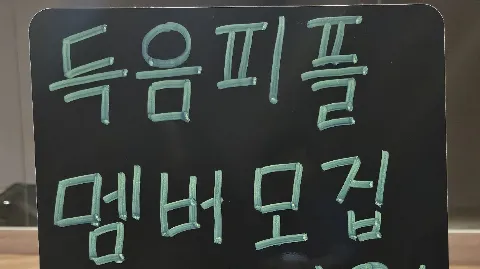 득음피플
멤버모집